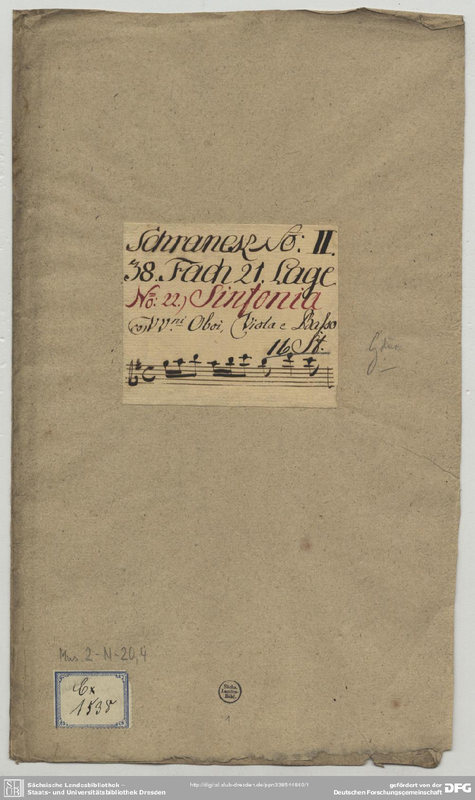 Schranck No: II.
38. Fach 21. Lage
No: 22.) Sinfonia
co VV.ni Oboi, Viola e Basso
16 St.
G dur
Mus. 2-N-20,4
Cx
1535
Sächs.
Landes-
Bibl.
1
SLUB
Sächsische Landesbibliothek –
Staats- und Universitätsbibliothek Dresden
gefördert von der
Deutschen Forschungsgemeinschaft
DFG